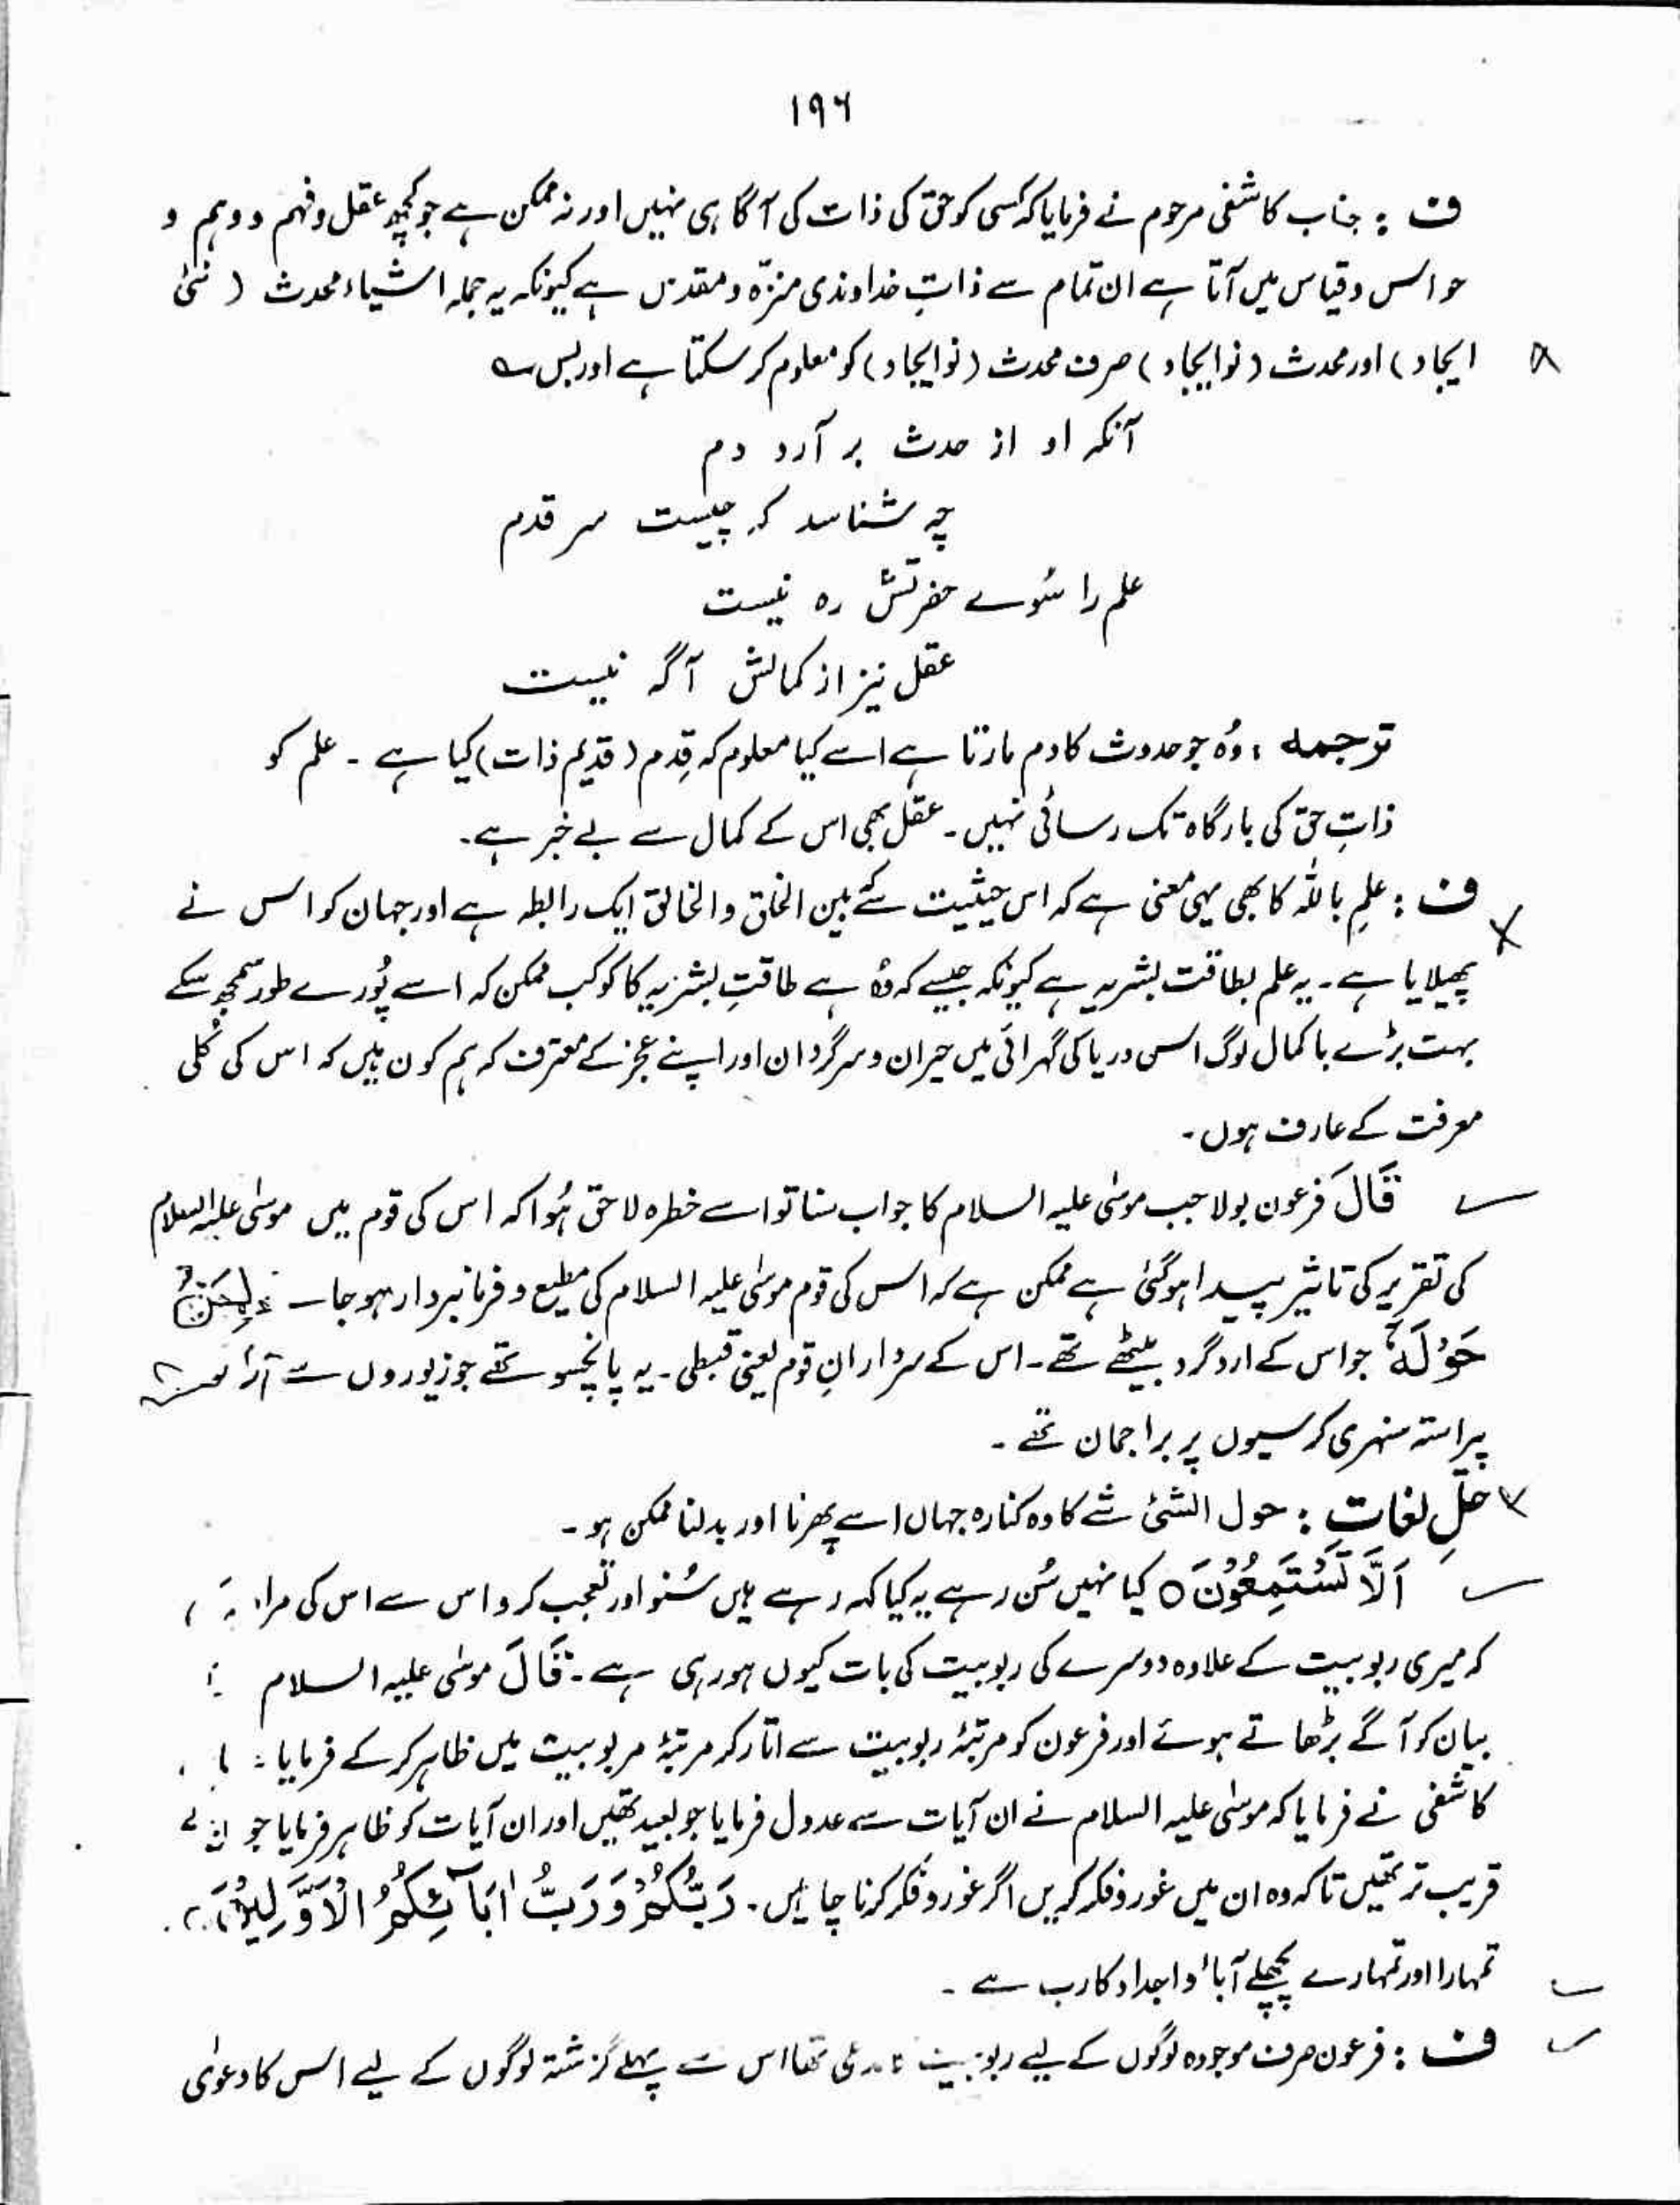 ۱۹۶
ف : جناب کاشفی مرحوم نے فرمایا کہ کسی کو حق کی ذات کی آگاہی نہیں اور نہ ممکن ہے جو کچھ عقل و فہم و وہم و
حواس و قیاس میں آتا ہے ان تمام سے ذاتِ خداوندی منزّہ و مقدس ہے کیونکہ یہ جملہ اشیاء محدث ( نئی
ایجاد ) اور محدث ( نوایجاد ) صرف محدث ( نوایجاد ) کو معلوم کر سکتا ہے اور بس ؎
آنکہ او از حدث بر آرد دم
چہ شناسد کہ چیست سر قدم
علم را سُوے حضرتش رہ نیست
عقل نیز از کمالش آگہ نیست
ترجمہ : وُہ جو حدوث کا دم مارتا ہے اسے کیا معلوم کہ قِدم ( قدیم ذات ) کیا ہے ۔ علم کو
ذاتِ حق کی بارگاہ تک رسائی نہیں ۔ عقل بھی اس کے کمال سے بے خبر ہے ۔
ف : علمِ باللہ کا بھی یہی معنی ہے کہ اس حیثیت سے کہ بین الخلق والخالق ایک رابطہ ہے اور جہان کو اس نے
پھیلایا ہے ۔ یہ علم بطاقت بشریہ ہے کیونکہ جیسے کہ وُہ ہے طاقتِ بشریہ کا کو کب ممکن کہ اسے پُورے طور سمجھ سکے
بہت بڑے باکمال لوگ اس دریا کی گہرائی میں حیران و سرگردان اور اپنے عجز کے معترف کہ ہم کون ہیں کہ اس کی کُلی
معرفت کے عارف ہوں ۔
قَالَ فرعون بولا جب موسٰی علیہ السلام کا جواب سنا تو اسے خطرہ لاحق ہُوا کہ اس کی قوم میں موسٰی علیہ السلام
کی تقریر کی تاثیر پیدا ہو گئی ہے ممکن ہے کہ اس کی قوم موسٰی علیہ السلام کی مطیع و فرمانبردار ہو جا لِمَنْ
حَوْلَہٗ جو اس کے ارد گرد بیٹھے تھے ۔ اس کے سردارانِ قوم یعنی قبطی ۔ یہ پانچسو تھے جو زیوروں سے
پیراستہ سنہری کرسیوں پر براجمان تھے ۔
حلِّ لغات : حول الشئ شے کا وہ کنارہ جہاں اسے پھرنا اور بدلنا ممکن ہو ۔
اَلَا تَسْتَمِعُوْنَ ○ کیا نہیں سُن رہے یہ کیا کہہ رہے ہیں سُنو اور تعجب کرو اس سے اس کی مراد
کہ میری ربوبیت کے علاوہ دوسرے کی ربوبیت کی بات کیوں ہو رہی ہے ۔ قَالَ موسٰی علیہ السلام
بیان کو آگے بڑھاتے ہوئے اور فرعون کو مرتبۂ ربوبیت سے اتار کر مرتبۂ مربوبیت میں ظاہر کر کے فرمایا :
کاشفی نے فرمایا کہ موسٰی علیہ السلام نے ان آیات سے عدول فرمایا جو بعید تھیں اور ان آیات کو ظاہر فرمایا جو
قریب تر تھیں تاکہ وہ ان میں غور و فکر کریں اگر غور و فکر کرنا چاہیں ۔ رَبُّکُمْ وَ رَبُّ اٰبَآئِکُمُ الْاَوَّلِیْنَ
تمہارا اور تمہارے پچھلے آباء و اجداد کا رب ہے ۔
ف : فرعون صرف موجودہ لوگوں کے لیے ربوبیت مدعی تھا اس سے پہلے گزشتہ لوگوں کے لیے اس کا دعوٰی